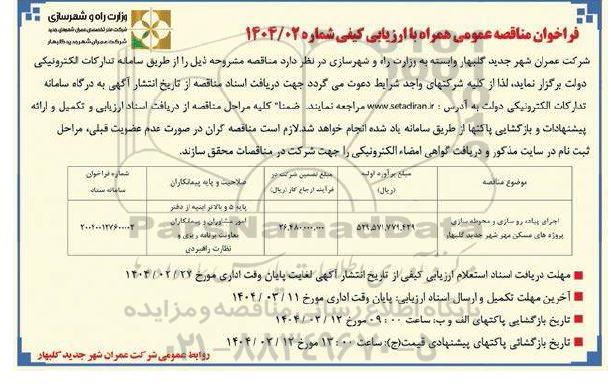 وزارت راه و شهرسازی
شرکت مادر تخصصی عمران شهرهای جدید
شرکت عمران شهر جدید گلبهار
فراخوان مناقصه عمومی همراه با ارزیابی کیفی شماره ۱۴۰۴/۰۲
شرکت عمران شهر جدید گلبهار وابسته به وزارت راه و شهرسازی در نظر دارد مناقصه مشروحه ذیل را از طریق سامانه تدارکات الکترونیکی
دولت برگزار نماید، لذا از کلیه شرکتهای واجد شرایط دعوت می گردد جهت دریافت اسناد مناقصه از تاریخ انتشار آگهی به درگاه سامانه
تدارکات الکترونیکی دولت به آدرس : www.setadiran.ir مراجعه نمایند. ضمنا" کلیه مراحل مناقصه از دریافت اسناد ارزیابی و تکمیل و ارائه
پیشنهادات و بازگشایی پاکتها از طریق سامانه یاد شده انجام خواهد شد.لازم است مناقصه گران در صورت عدم عضویت قبلی، مراحل
ثبت نام در سایت مذکور و دریافت گواهی امضاء الکترونیکی را جهت شرکت در مناقصات محقق سازند.
موضوع مناقصه
مبلغ برآورد اولیه (ریال)
مبلغ تضمین شرکت در فرآیند ارجاع کار (ریال)
صلاحیت و پایه پیمانکاران
شماره فراخوان سامانه ستاد
اجرای پیاده رو سازی و محوطه سازی
پروژه های مسکن مهر شهر جدید گلبهار
۵۲۹,۵۷۱,۷۷۲,۴۲۹
۲۶,۴۸۰,۰۰۰,۰۰۰
پایه ۵ و بالاتر ابنیه از دفتر
امور مشاوران و پیمانکاران
معاونت برنامه ریزی و
نظارت راهبردی
۲۰۰۴۰۰۱۲۷۶۰۰۰۰۰۲
مهلت دریافت اسناد استعلام ارزیابی کیفی از تاریخ انتشار آگهی لغایت پایان وقت اداری مورخ ۲۷ / ۰۲ / ۱۴۰۴
آخرین مهلت تکمیل و ارسال اسناد ارزیابی: پایان وقت اداری مورخ ۱۱ / ۰۳ / ۱۴۰۴
تاریخ بازگشایی پاکتهای الف و ب: ساعت ۰۰ : ۰۹ مورخ ۱۲ / ۰۳ / ۱۴۰۴
تاریخ بازگشائی پاکتهای پیشنهادی قیمت(ج): ساعت ۰۰ : ۱۳ مورخ ۱۲ / ۰۳ / ۱۴۰۴
روابط عمومی شرکت عمران شهر جدید گلبهار
پایگاه اطلاع رسانی مناقصه و مزایده
۰۲۱-۸۸۳۴۹۶۷۰-۵